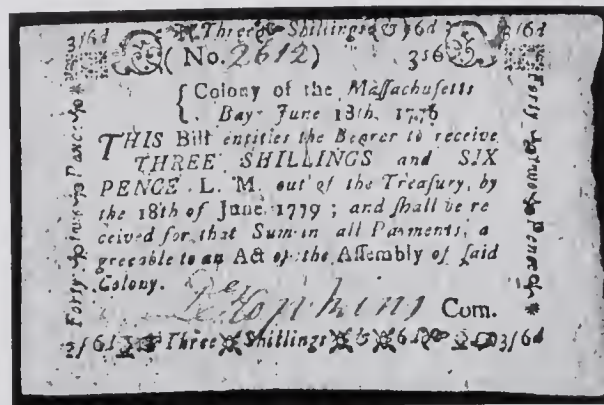 3/6d Three Shillings & 6d 3/6d
(No. 2612) 3s6
Colony of the Maſſachuſetts
Bay June 18th, 1776
THIS Bill entitles the Bearer to receive
THREE SHILLINGS and SIX
PENCE L. M. out of the Treaſury, by
the 18th of June, 1779 ; and ſhall be re
ceived for that Sum in all Payments, a
greeable to an Act of the Aſſembly of ſaid
Colony.
Hopkins Com.
3/6d Three Shillings & 6d 3/6d
Forty two Pence
Forty two Pence